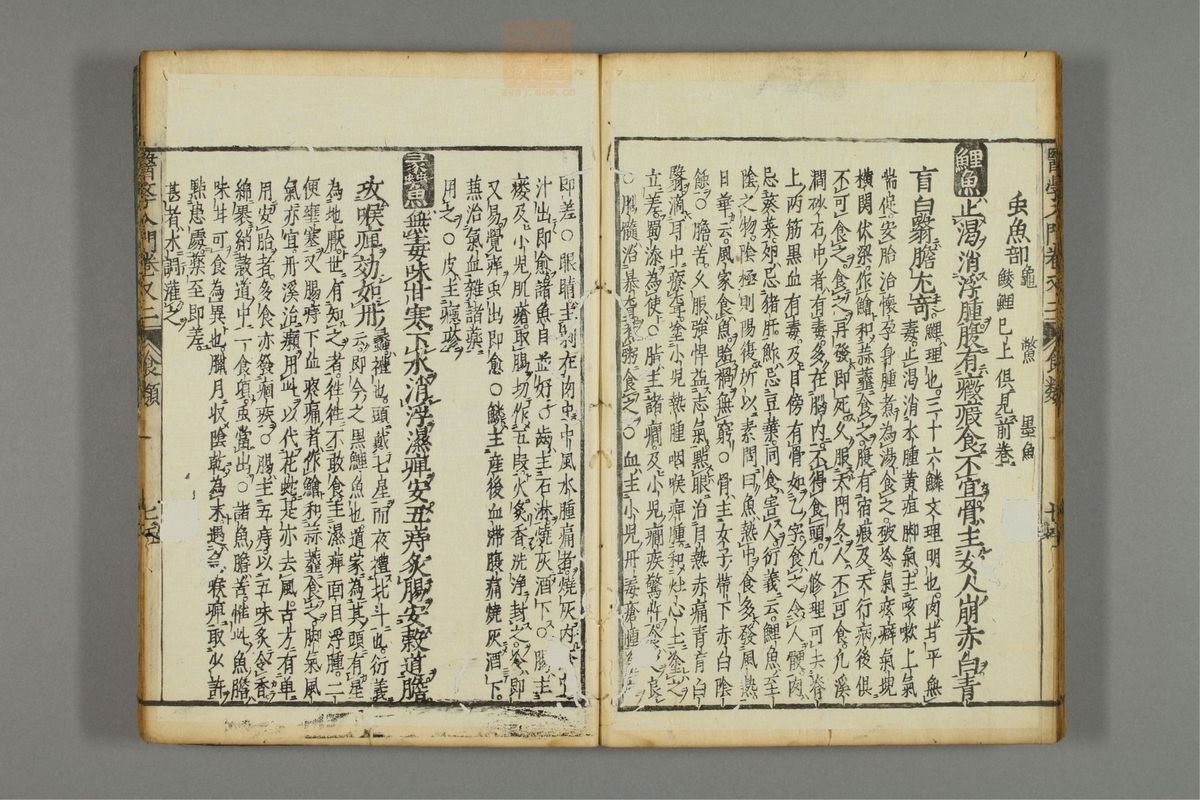 虫魚部 龜 鱉 墨魚
鯪鯉 巳上倶見前卷
鯉魚 止渴消浮腫腹有癥瘕食不宜骨主女人崩赤白青
盲白翳膽尤竒
鯉理也三十六鱗文理明也肉甘平無
毒止渴消水腫黃疸脚氣主咳嗽上氣
喘促安胎治懷孕身腫煮為湯食之破冷氣痃癖氣塊
横関伏梁作鱠和蒜虀食之腹有宿瘕及天行病後倶
不可食之食之再發即死久服天門冬人不可食凡溪
澗砂石中者有毒多在腦内不得食頭凡修理可去脊
上兩筋黑血有毒及目傍有骨如乙字食之令人鯁肉
忌葵菜卵忌猪肝鮓忌豆藿同食害人衍義云鯉魚至
陰之物陰極則陽復所以素問曰魚熱中食多發風熱
日華云風家食魚貽禍無窮○骨主女子帶下赤白陰
蝕○膽苦久服強悍益志氣點眼治目熱赤痛青盲白
翳滴耳中療聾塗小兒熱腫咽喉痺腫和灶心土塗之
立差蜀漆為使○腦主諸癇及小兒癇疾驚忤
○腦髓治暴聾煮粥食之○血主小兒丹毒瘡腫
即差○眼睛主刺在肉中中風水腫痛者燒灰内
汁出即愈諸魚目並好○齒主石淋燒灰酒下○腸主
瘘及小兒肌瘡取腸切作五段火炙香洗淨封之冷即
又易覺痒虫出即愈○鱗主産後血滯腹痛燒灰酒下
兼治氣血雜諸藥
用之○皮主癮疹
蠡魚 無毒味甘寒下水消浮濕痺安五痔炙腸安穀道膽
攻喉痺効如丹
蠡禮也頭戴七星而夜禮北斗也衍義
云即今之黑鯉魚也道家為其頭有星
為地厭世有知之者徃徃不敢食主濕痺面目浮腫二
便壅塞又腸痔下血疼痛者作鱠和蒜虀食之脚氣風
氣亦宜丹溪治癩用此以代花蛇是亦去風古方有單
用安胎者多食亦發痼疾○腸主五痔以五味炙令香
綿褁納穀道中一食頃虫當出○諸魚膽苦惟此魚膽
味甘可食為異也臘月収陰乾為末遇急喉痺取少許
點患處藥至即差
甚者水調灌之
醫學入門卷又二 食類